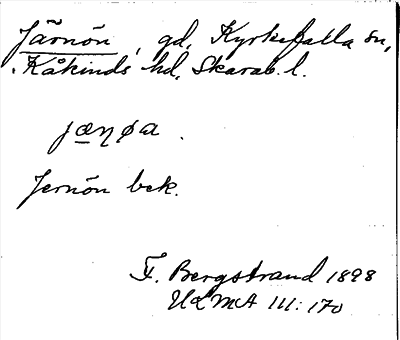 Järnön, gd, Kyrkefalla sn,
Kåkinds hd, Skarab. l.
jæŋøa.
Jernön bek.
F. Bergstrand 1898
ULMA III:170